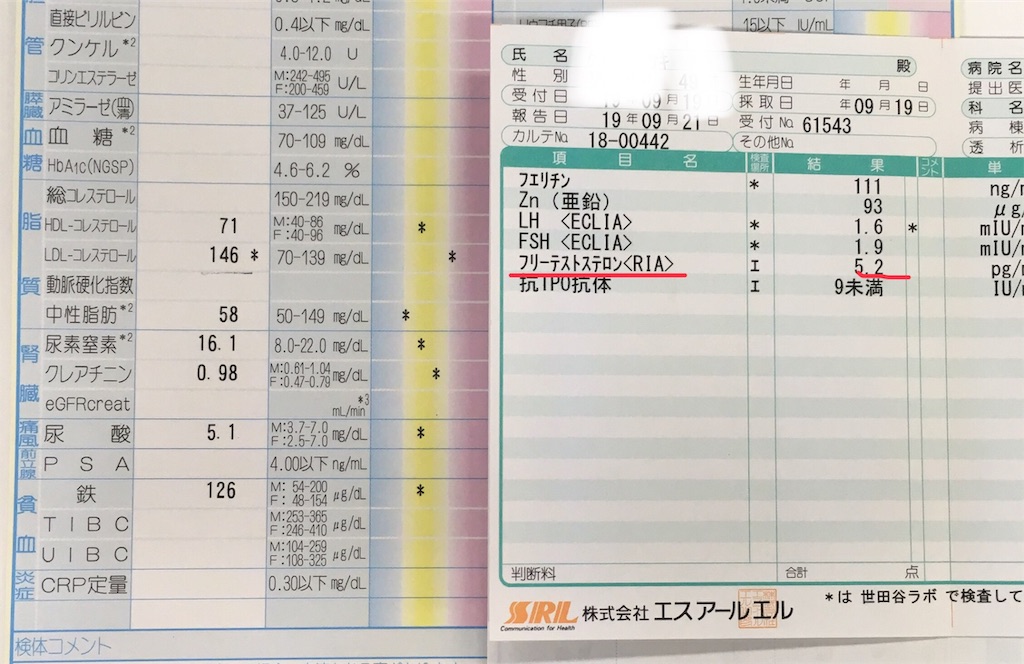 直接ビリルビン 0.4以下 mg/dL
管 クンケル*2 4.0-12.0 U
コリンエステラーゼ M:242-495 F:200-459 U/L
膵臓 アミラーゼ 37-125 U/L
血糖 血糖*2 70-109 mg/dL
HbA1c(NGSP) 4.6-6.2 %
脂質 総コレステロール 150-219 mg/dL
HDL-コレステロール 71 M:40-86 F:40-96 mg/dL *
LDL-コレステロール 146 * 70-139 mg/dL *
動脈硬化指数
中性脂肪*2 58 50-149 mg/dL *
腎臓 尿素窒素*2 16.1 8.0-22.0 mg/dL *
クレアチニン 0.98 M:0.61-1.04 F:0.47-0.79 mg/dL *
eGFRcreat *3 mL/min
痛風 尿酸 5.1 M:3.7-7.0 F:2.5-7.0 mg/dL *
前立腺 PSA 4.00以下 ng/mL
貧血 鉄 126 M: 54-200 F: 48-154 μg/dL *
TIBC M:253-365 F:246-410 μg/dL
UIBC M:104-259 F:108-325 μg/dL
炎症 CRP定量 0.30以下 mg/dL
検体コメント
15以下 IU/mL
氏名 殿 病院名
性別 生年月日 年 月 日 提出医
受付日 19年09月19日 採取日 年09月19日 科名
報告日 19年09月21日 受付No. 61543 病棟
カルテNo. 18-00442 その他No. 透析
項目名 検査場所 結果 コメント 単
フェリチン * 111 ng/m
Zn (亜鉛) 93 μg/
LH <ECLIA> * 1.6 * mIU/m
FSH <ECLIA> * 1.9 mIU/m
フリーテストステロン<RIA> I 5.2 pg/m
抗TPO抗体 I 9未満 IU/m
判断料 合計 点
SRL 株式会社エスアールエル *は 世田谷ラボ で検査して
Communication for Health